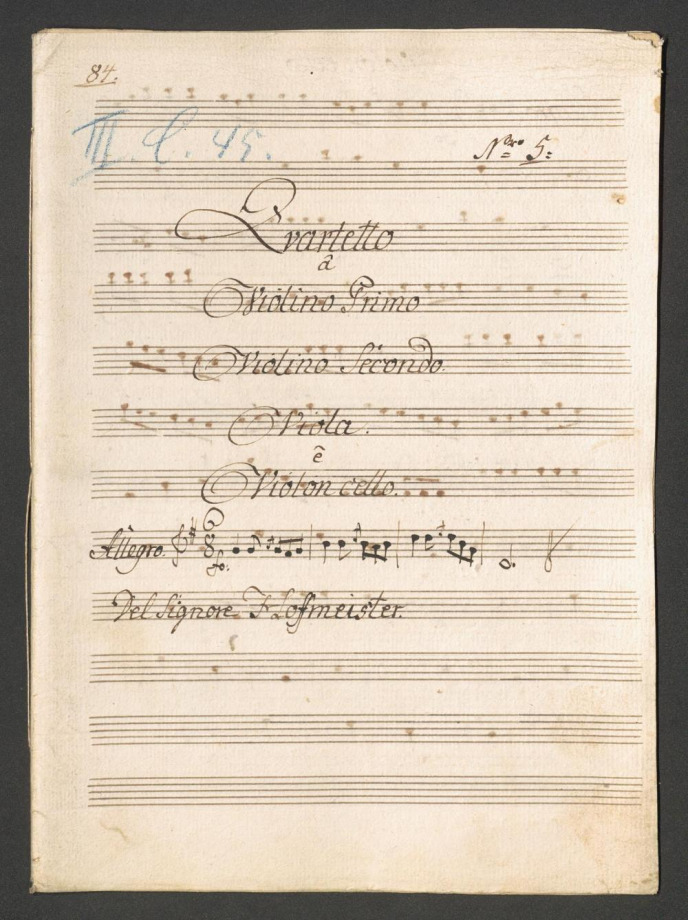 84.
III. C. 45.
Nro 5:
Qvartetto
â
Violino Primo
Violino Secondo.
Viola.
ê
Violoncello.
Allegro.
fo:
Del Signore Hofmeister.